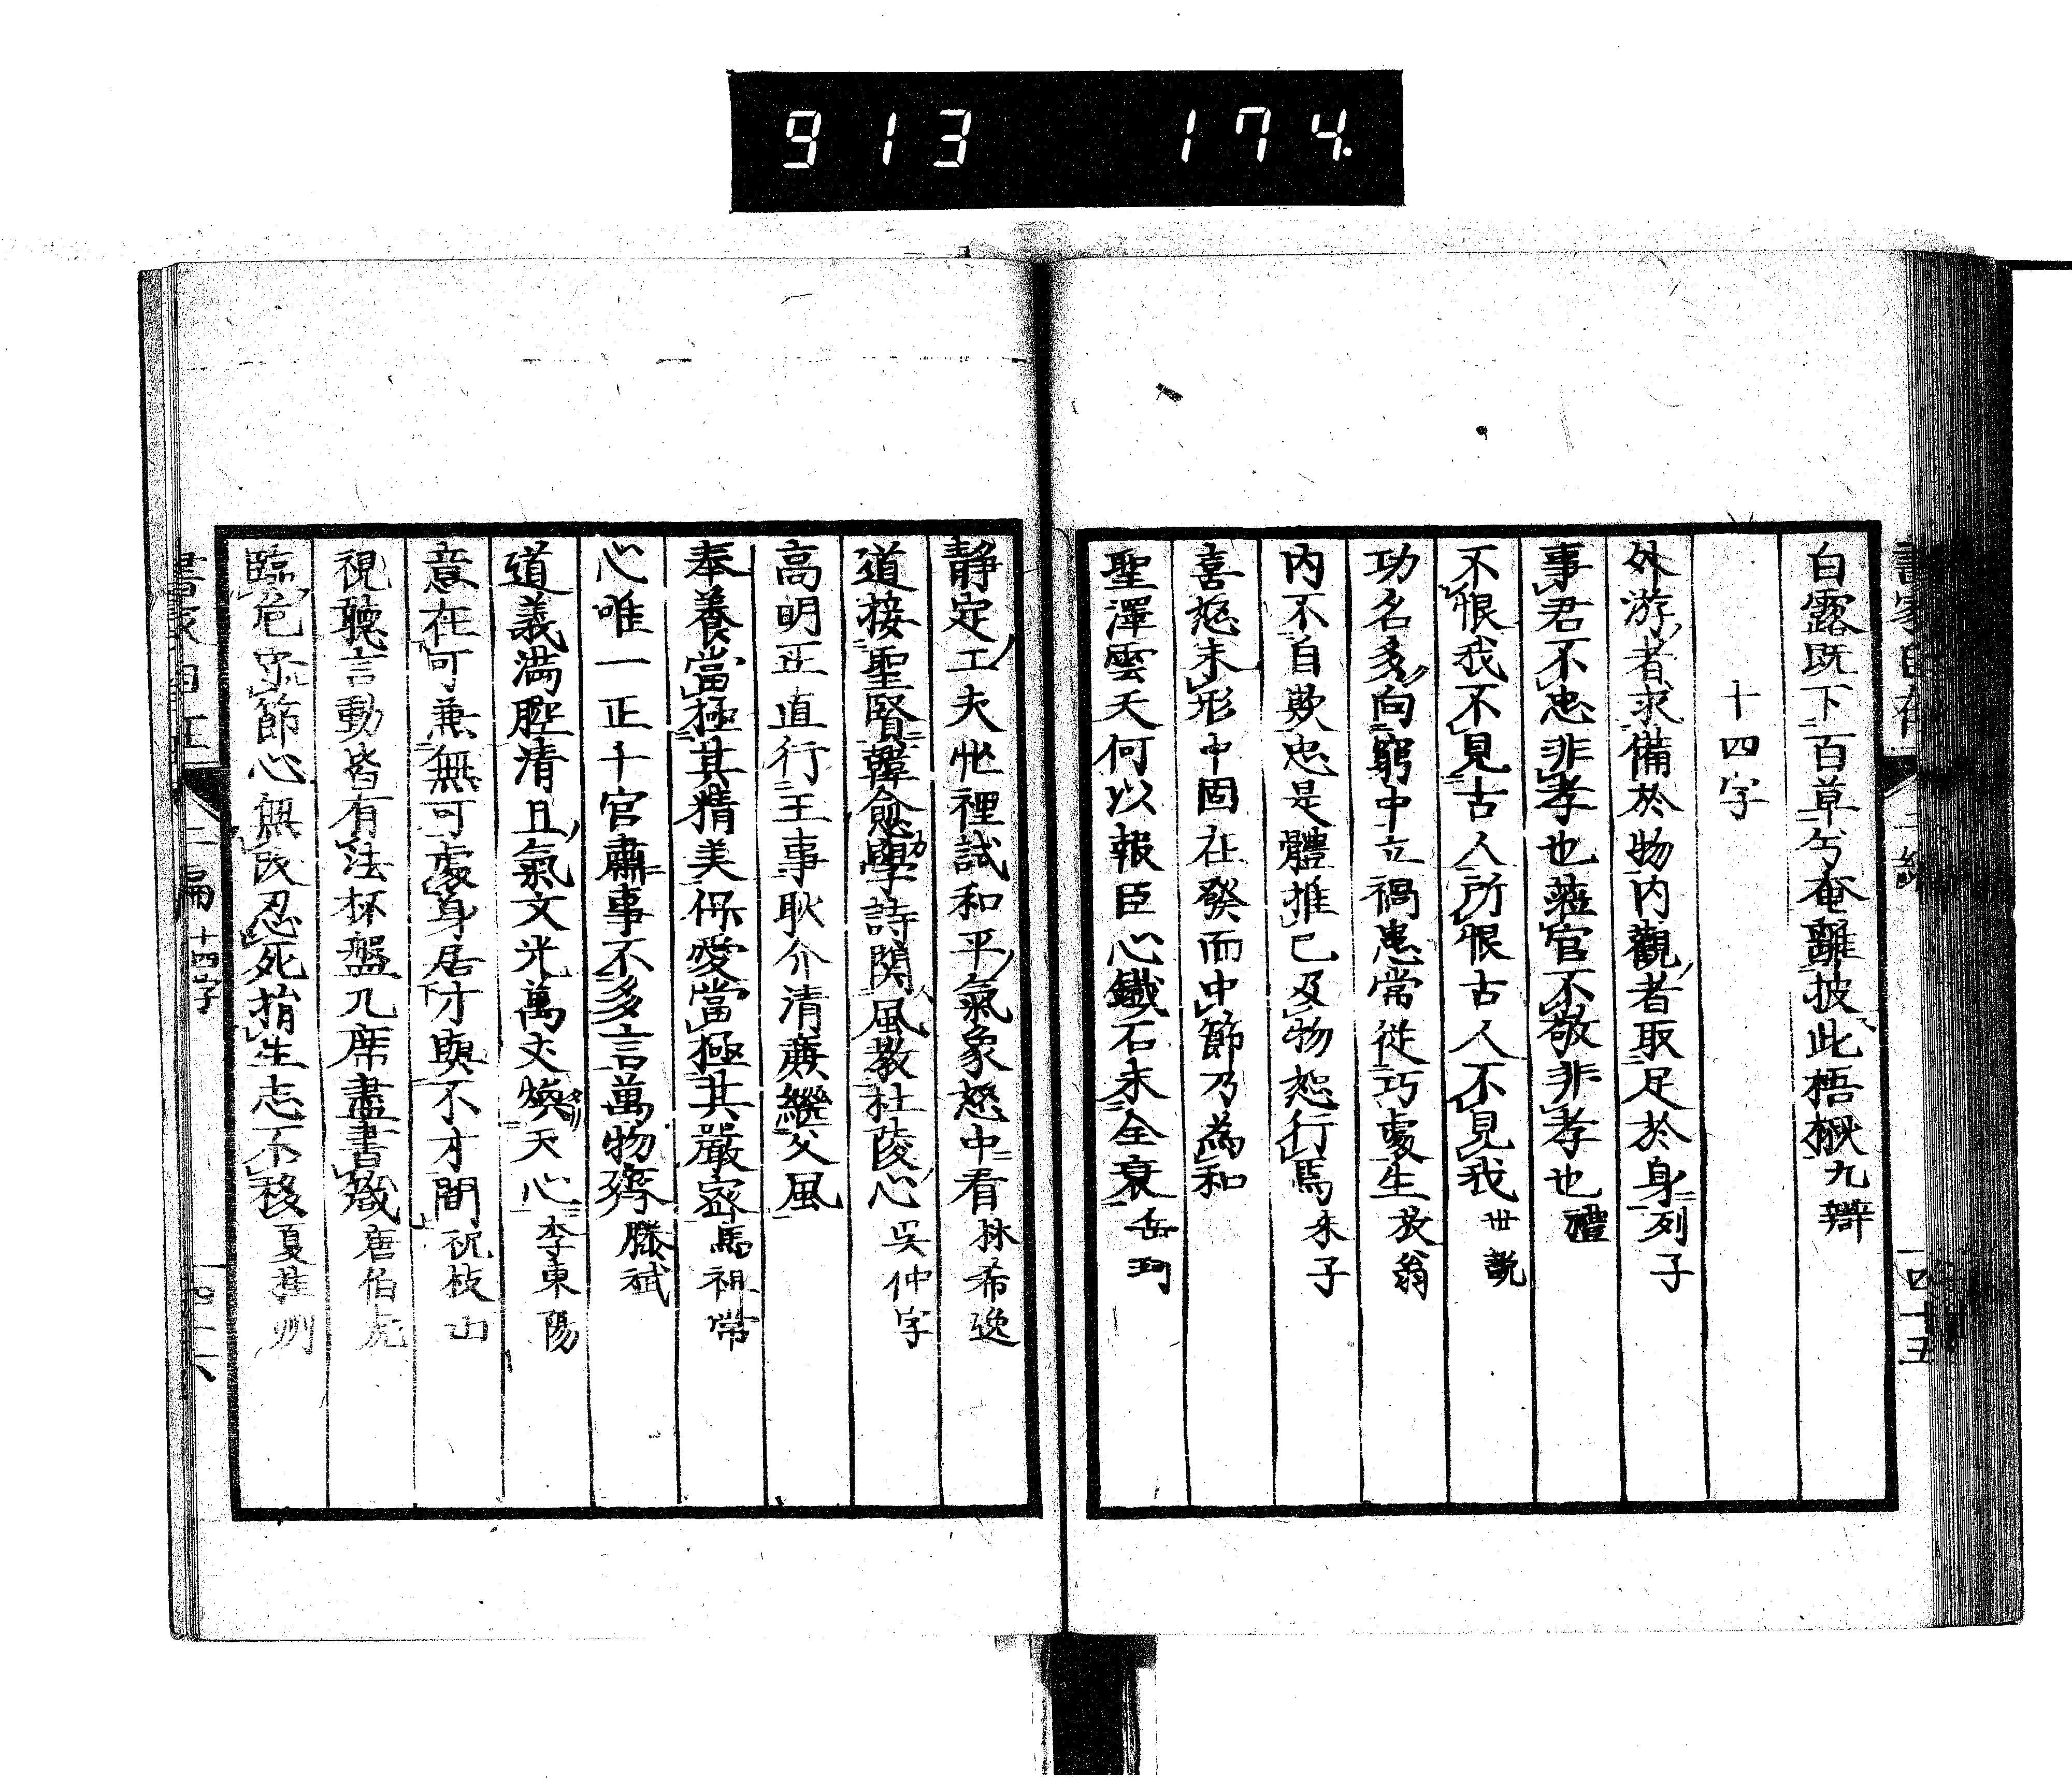 913 174.
白露既下百草兮奄離披此梧楸九辯
十四字
外游者求備於物内觀者取足於身列子
事君不忠非孝也蒞官不敬非孝也禮
不恨我不見古人所恨古人不見我世説
功名多向窮中立禍患常從巧處生放翁
内不自欺忠是體推己及物恕行焉朱子
喜怒未形中固在發而中節乃為和
聖澤雲天何以報臣心鐵石未全衰岳珂
二編
四十五
靜定工夫忙裡試和平氣象怒中看林希逸
道接聖賢韓愈學詩關風教杜陵心吳仲字
高明正直行王事耿介清廉繼父風
奉養當極其精美保愛當極其嚴密馬祖常
心唯一正千官肅事不多言萬物齊滕斌
道義満腔清且氣文光萬丈煥天心李東陽
意在可兼無可處身居才與不才間祝枝山
視聽言動皆有法杯盤几席盡書箴唐伯虎
臨危宗節心無改忍死捐生志不移夏桂洲
二編 十四字
四十六